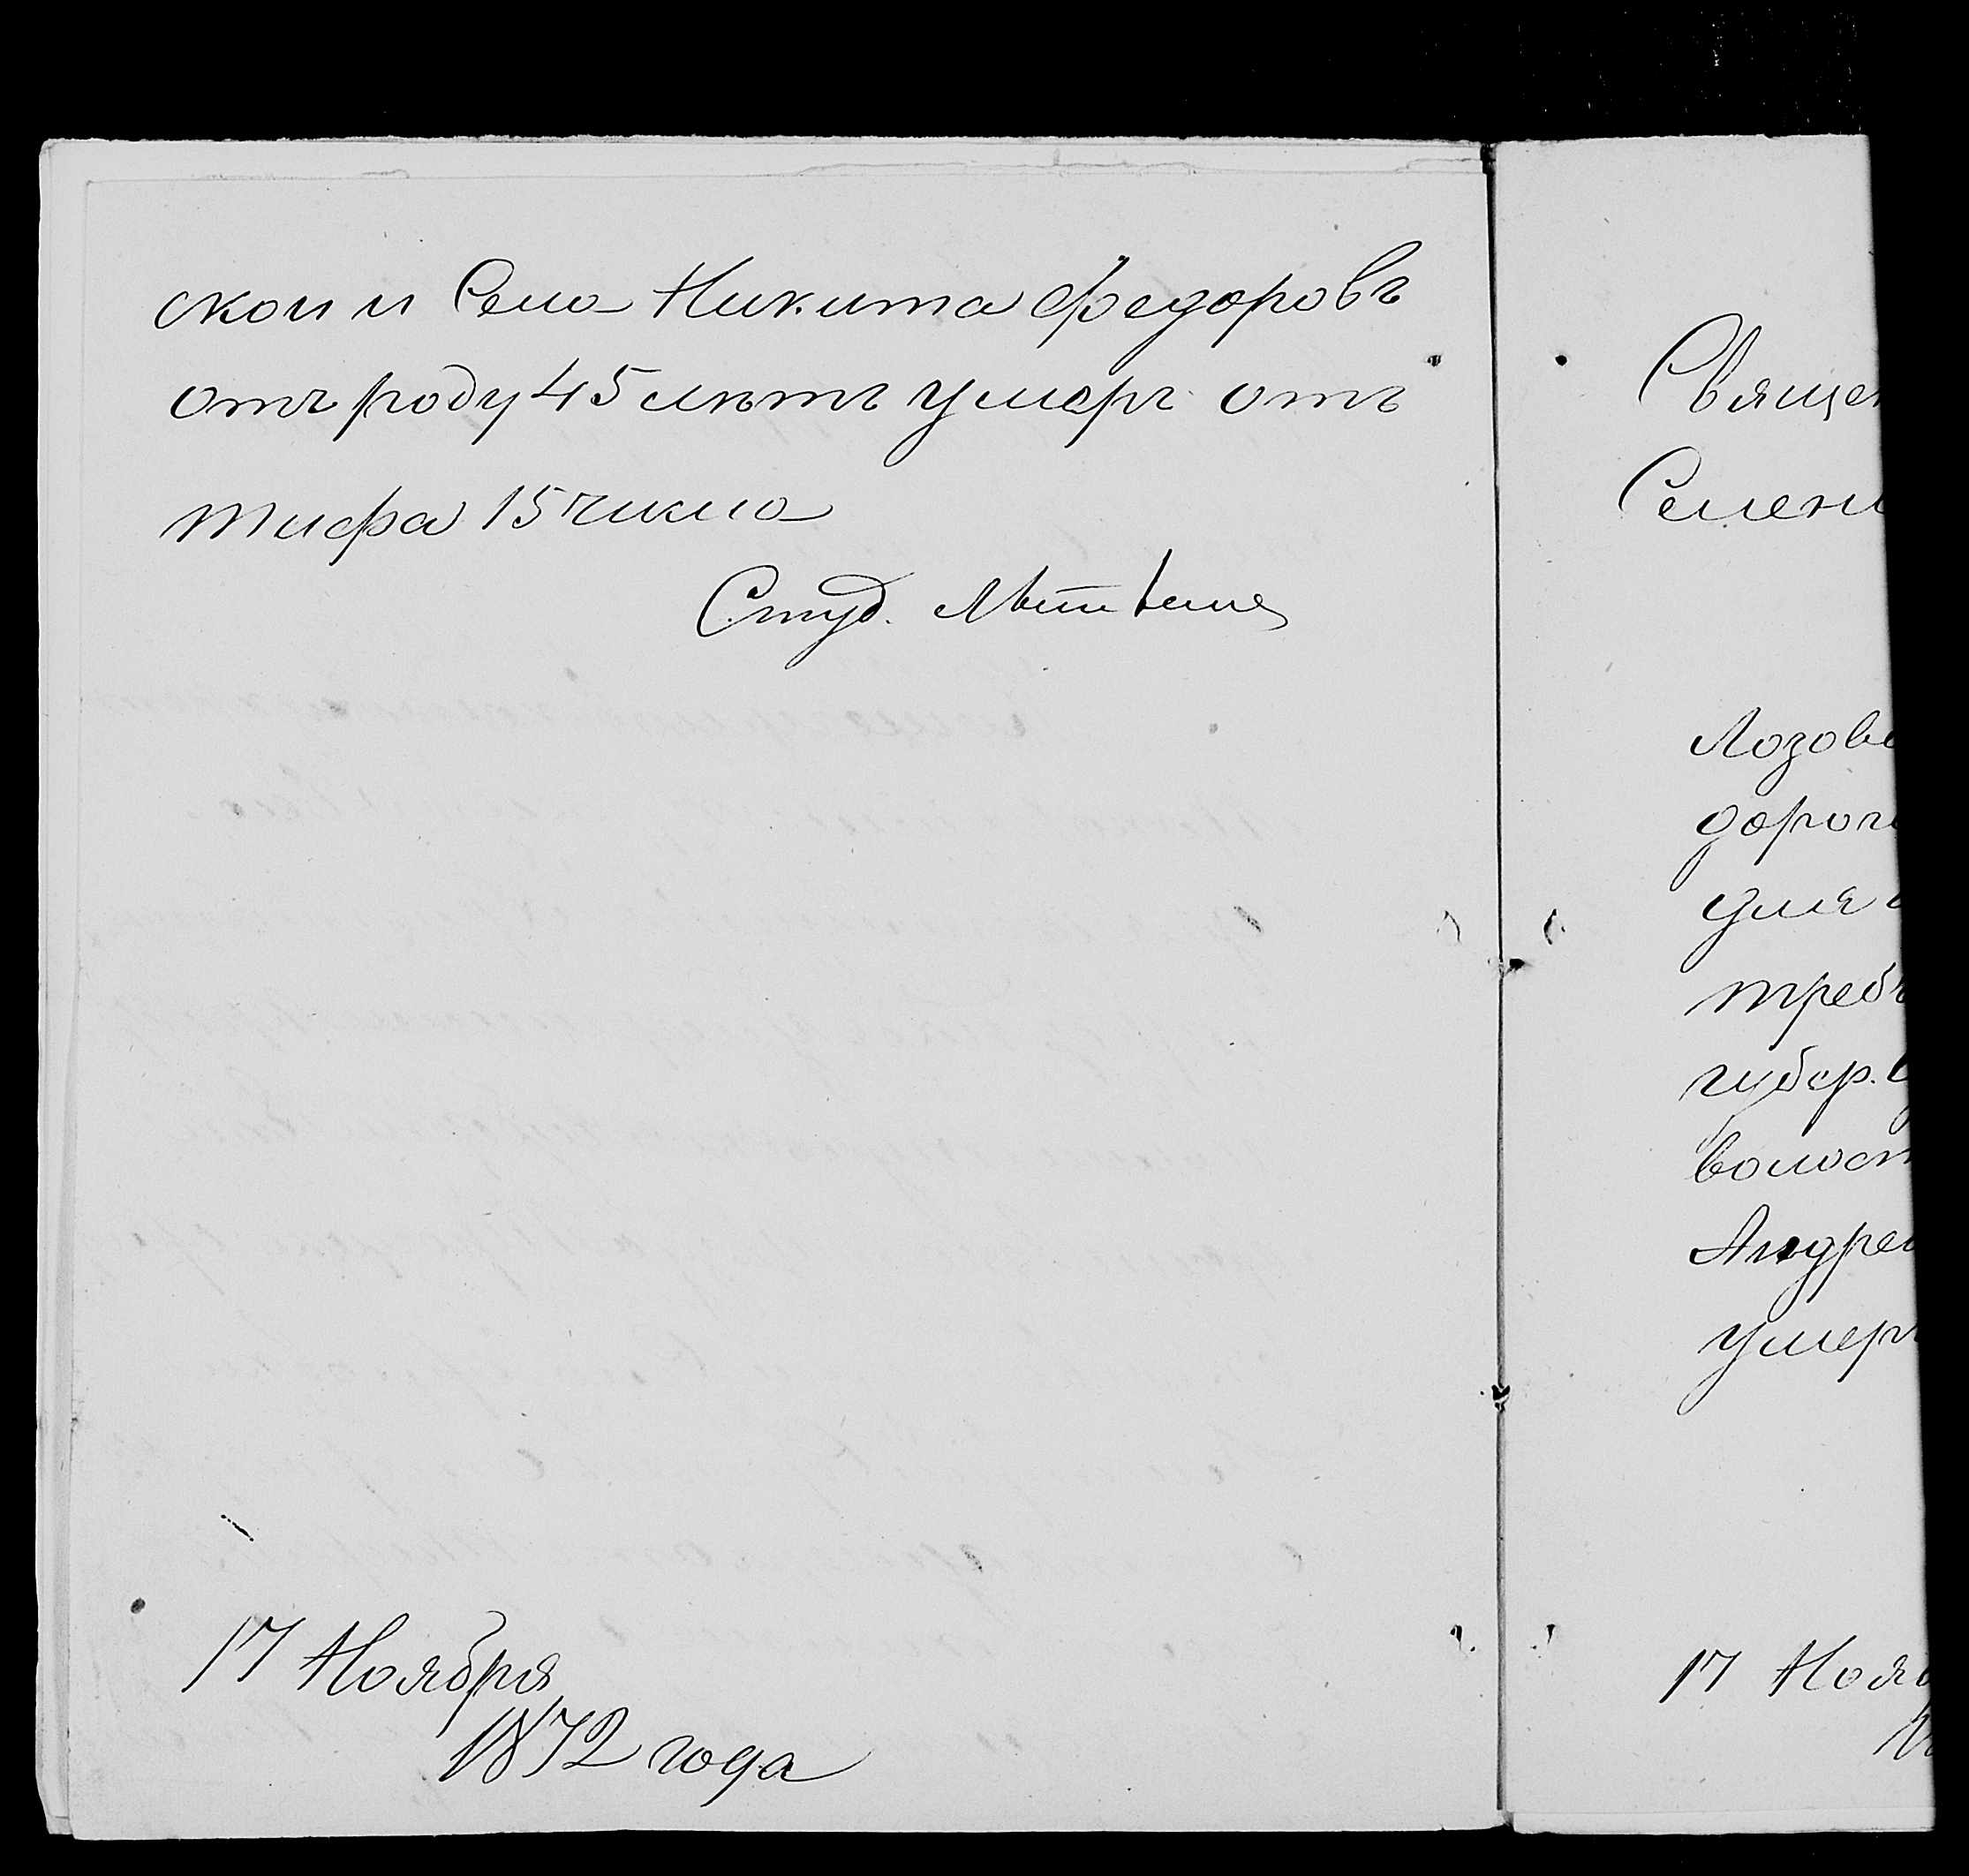 ской и Села Никита Федоровъ
отъ роду 45 лѣтъ умеръ отъ
тифа 15 числа
Студ.
17 Ноября
1872 года
Священ
Семен
Лозово
дороги
для
требу
губер.
волост
Андрей
умеръ
17 Нояб